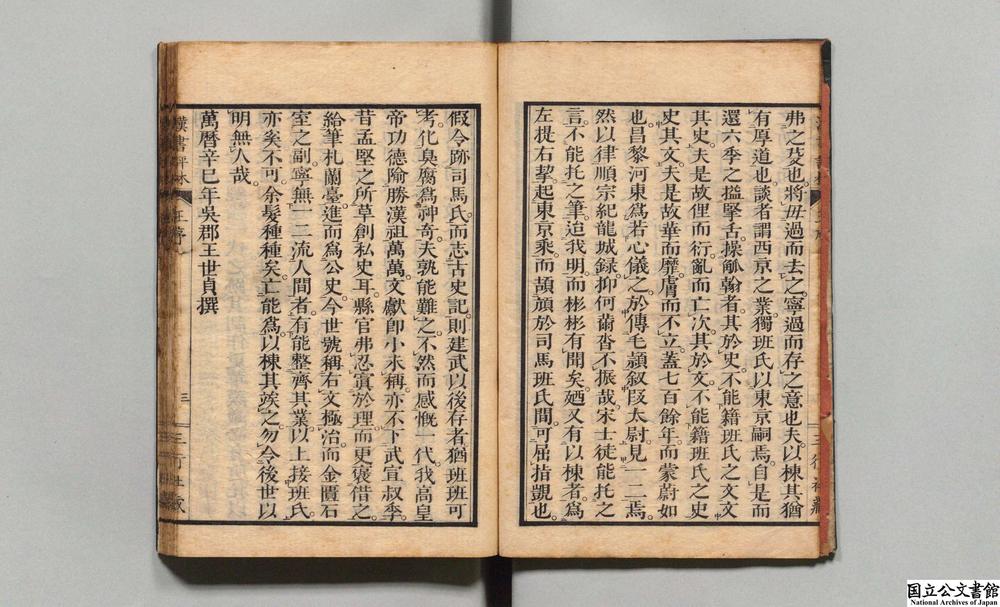 弗之及也。將毋過而去之。寧過而存之意也夫。以棟其猶
有厚道也。談者謂西京之業。獨班氏以東京嗣焉。自是而
還。六季之搤掔舌操觚翰者。其於史。不能籍班氏之文。文
其史。夫是故俚而衍。亂而亡次。其於文。不能籍班氏之史。
史其文。夫是故華而靡。膚而不立。蓋七百餘年。而蒙蔚如
也。昌黎河東爲若心儀之。於傳毛穎叙段太尉。見一二焉。
然以律順宗紀龍城録。抑何萮沓不振哉。宋士徒能托之
言。不能托之筆。迨我明。而彬彬有聞矣。廼又有以棟者。爲
左提右挈。起東京乘。而頡頏於司馬班氏間。可屈指覬也。
假令跡司馬氏。而志古史記。則建武以後。存者猶班班可
考。化臭腐爲神奇。夫孰能難之。不然。而感慨一代。我高皇
帝功德隃勝漢祖萬萬。文獻卽小未稱。亦不下武宣。叔季
昔孟堅之所草創私史耳。縣官弗忍寘於理。而更褒借之。
給筆札蘭臺。進而爲公史。今世號稱右文極治。而金匱石
室之副。寧無一二流人間者。有能整齊其業。以上接班氏。
亦奚不可。余髮種種矣。亡能爲。以棟其竢之。勿令後世以
明無人哉。
萬曆辛巳年吳郡王世貞撰
漢書評林
王序
三
國立公文書館
National Archives of Japan